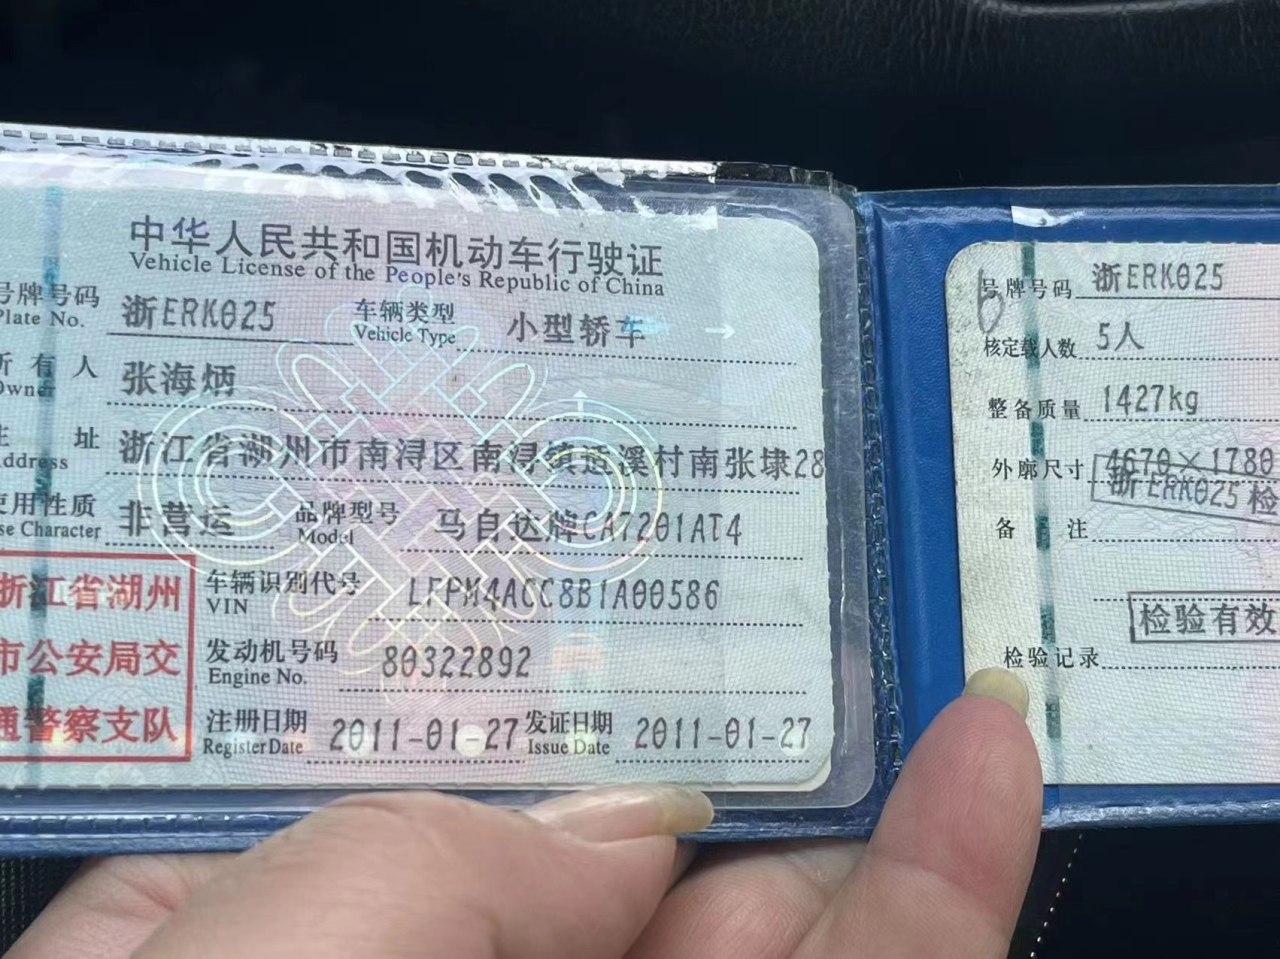 中华人民共和国机动车行驶证
Vehicle License of the People's Republic of China
号牌号码 浙ERK025 车辆类型 小型轿车
Plate No. Vehicle Type
所有人 张海炳
Owner
住址 浙江省湖州市南浔区南浔镇 溪村南张埭28
Address
使用性质 非营运 品牌型号 马自达牌CA7201AT4
Use Character Model
浙江省湖州
市公安局交
通警察支队
车辆识别代号 LFPM4ACC8B1A00586
VIN
发动机号码 80322892
Engine No.
注册日期 2011-01-27 发证日期 2011-01-27
Register Date Issue Date
号牌号码 浙ERK025
核定载人数 5人
整备质量 1427kg
外廓尺寸 4670×1780
浙ERK025 检
备注
检验有效
检验记录